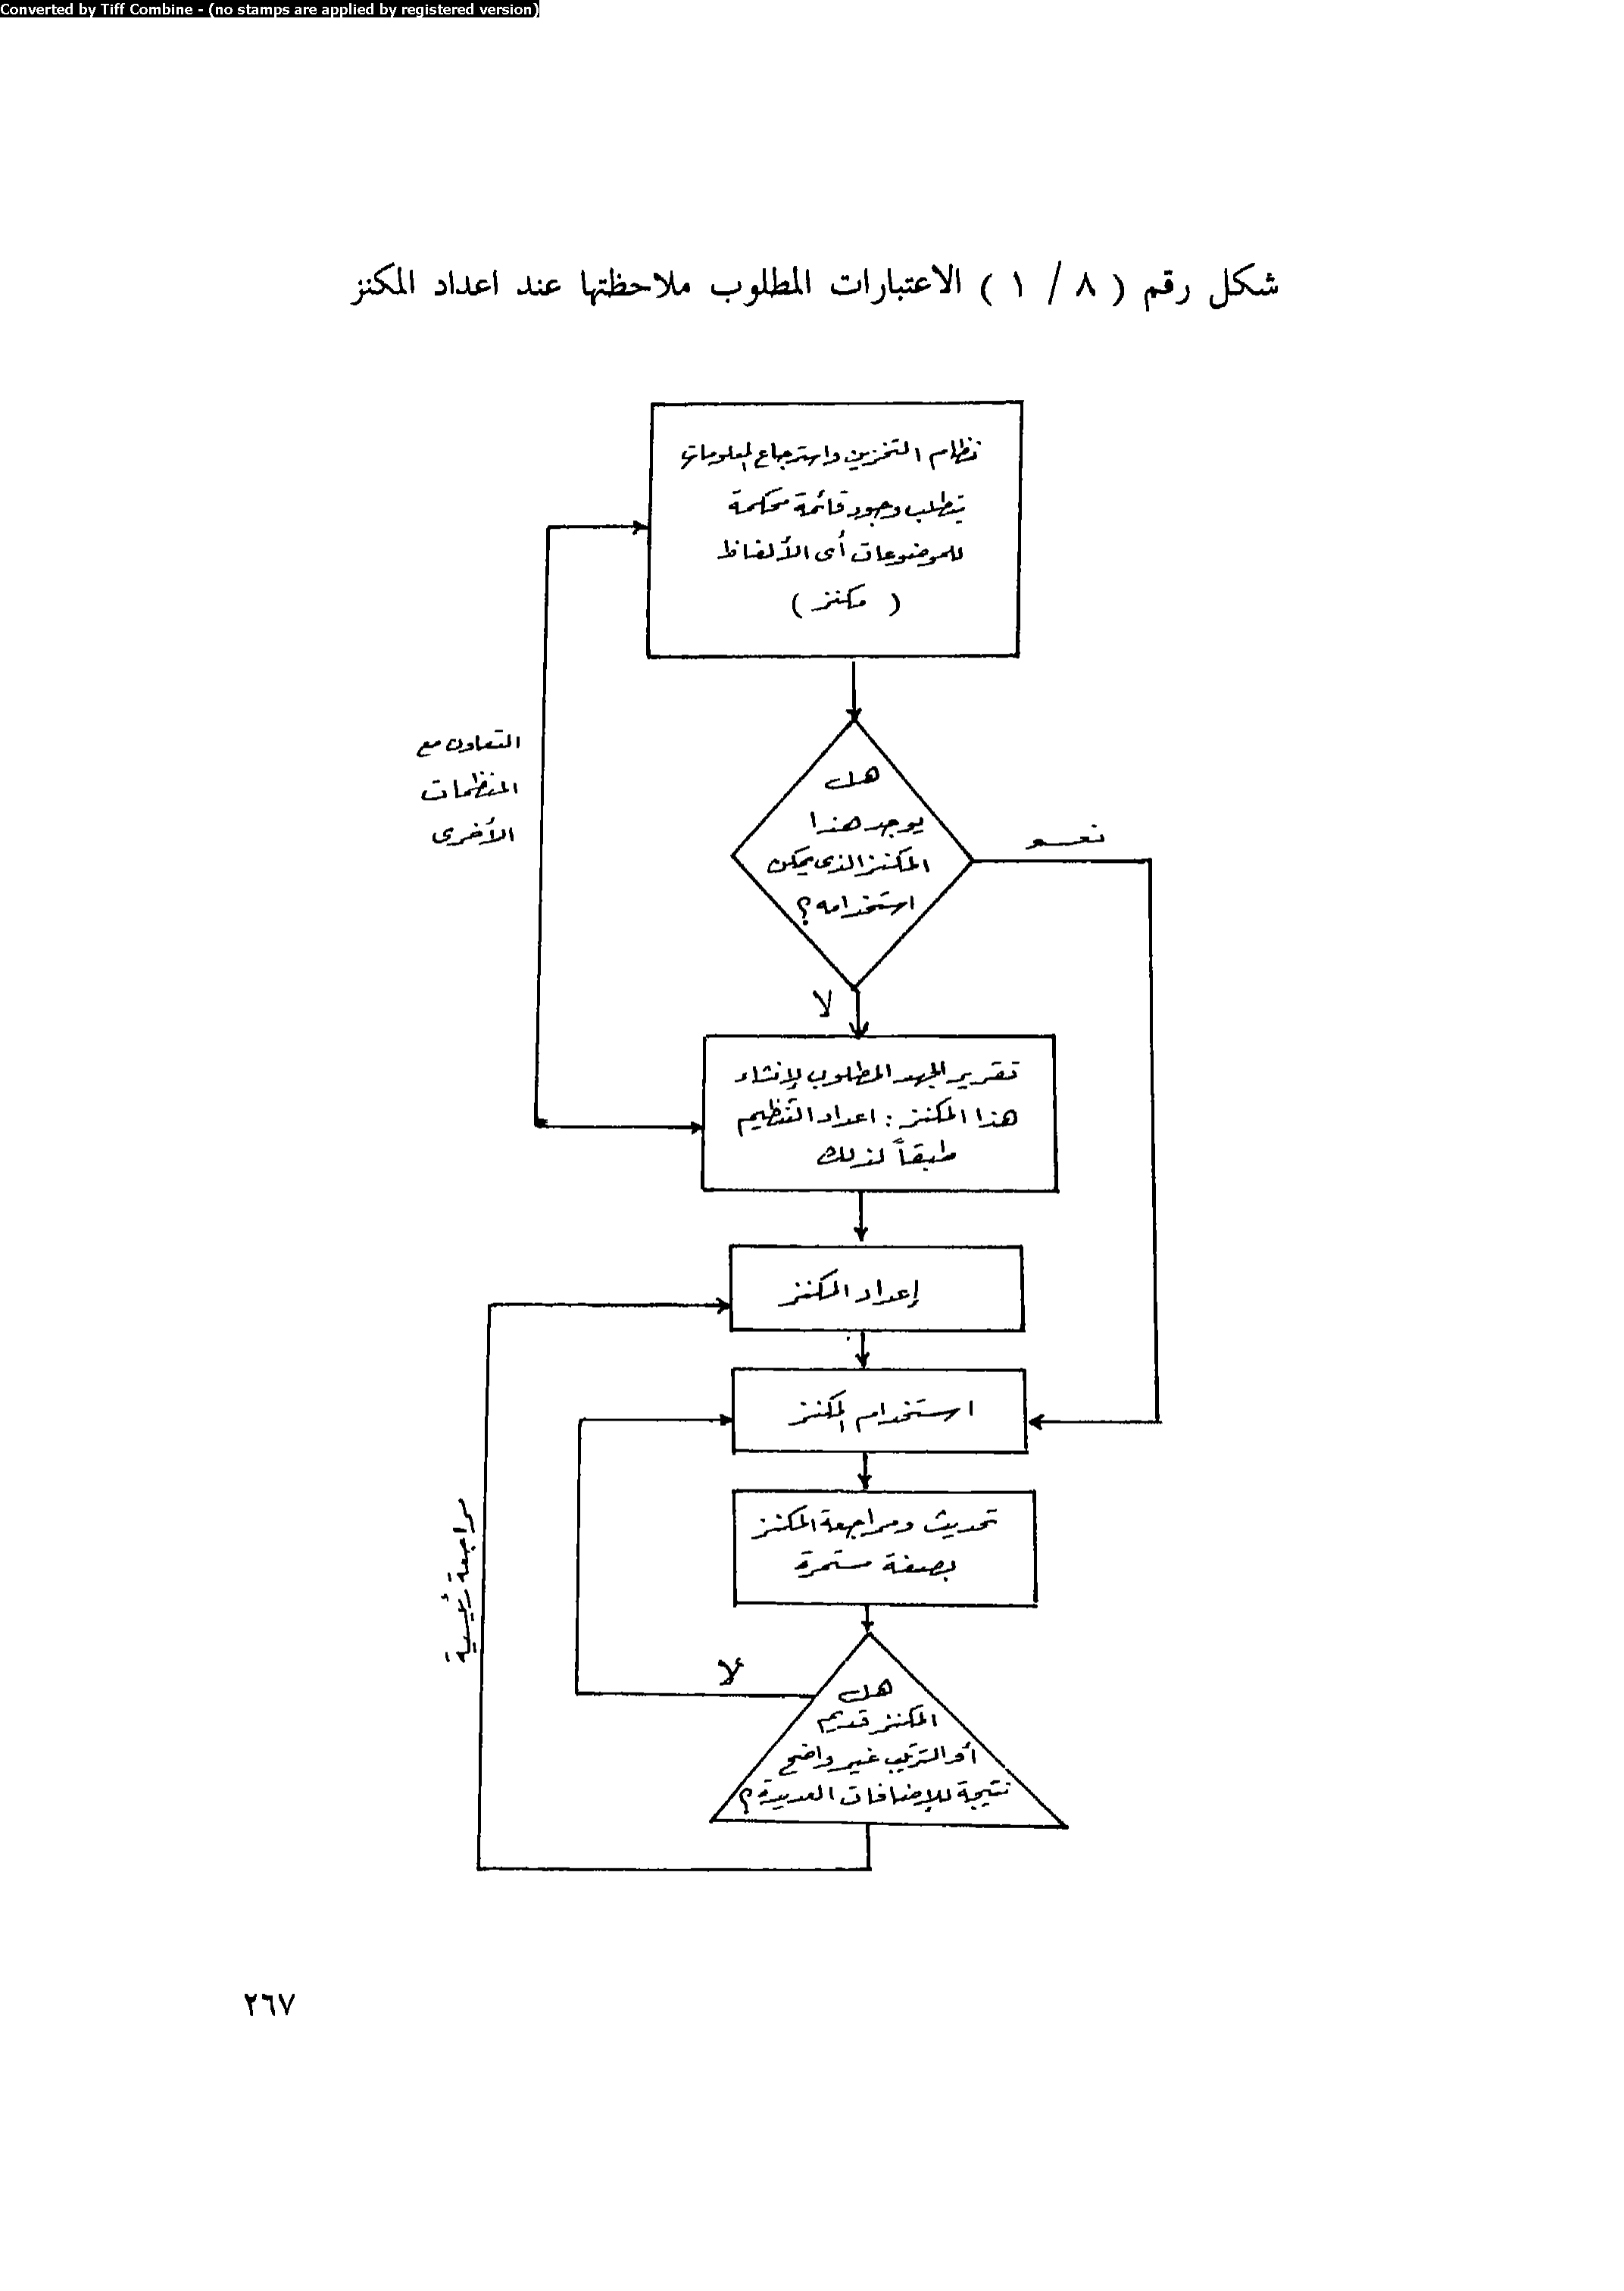 Converted by Tiff Combine - (no stamps are applied by registered version)
شكل رقم ( ٨ / ١ ) الاعتبارات المطلوب ملاحظتها عند اعداد المكنز
نظام التخزين واسترجاع المعلومات
يتطلب وجود قائمة محكمة
للموضوعات أى الألفاظ
( مكنز )
التعاون مع
المنظمات
الأخرى
هل
يوجد هذا
المكنز الذى يمكن
استخدامه ؟
نعم
لا
تقرير الجهد المطلوب لإنشاء
هذا المكنز : اعداد التنظيم
طبقاً لذلك
إعداد المكنز
استخدام المكنز
تحديث ومراجعة المكنز
بصفة مستمرة
مراجعة رئيسية
لا
هل
المكنز قديم
أو الترتيب غير واضح
نتيجة للإضافات العديدة ؟
٢٦٧